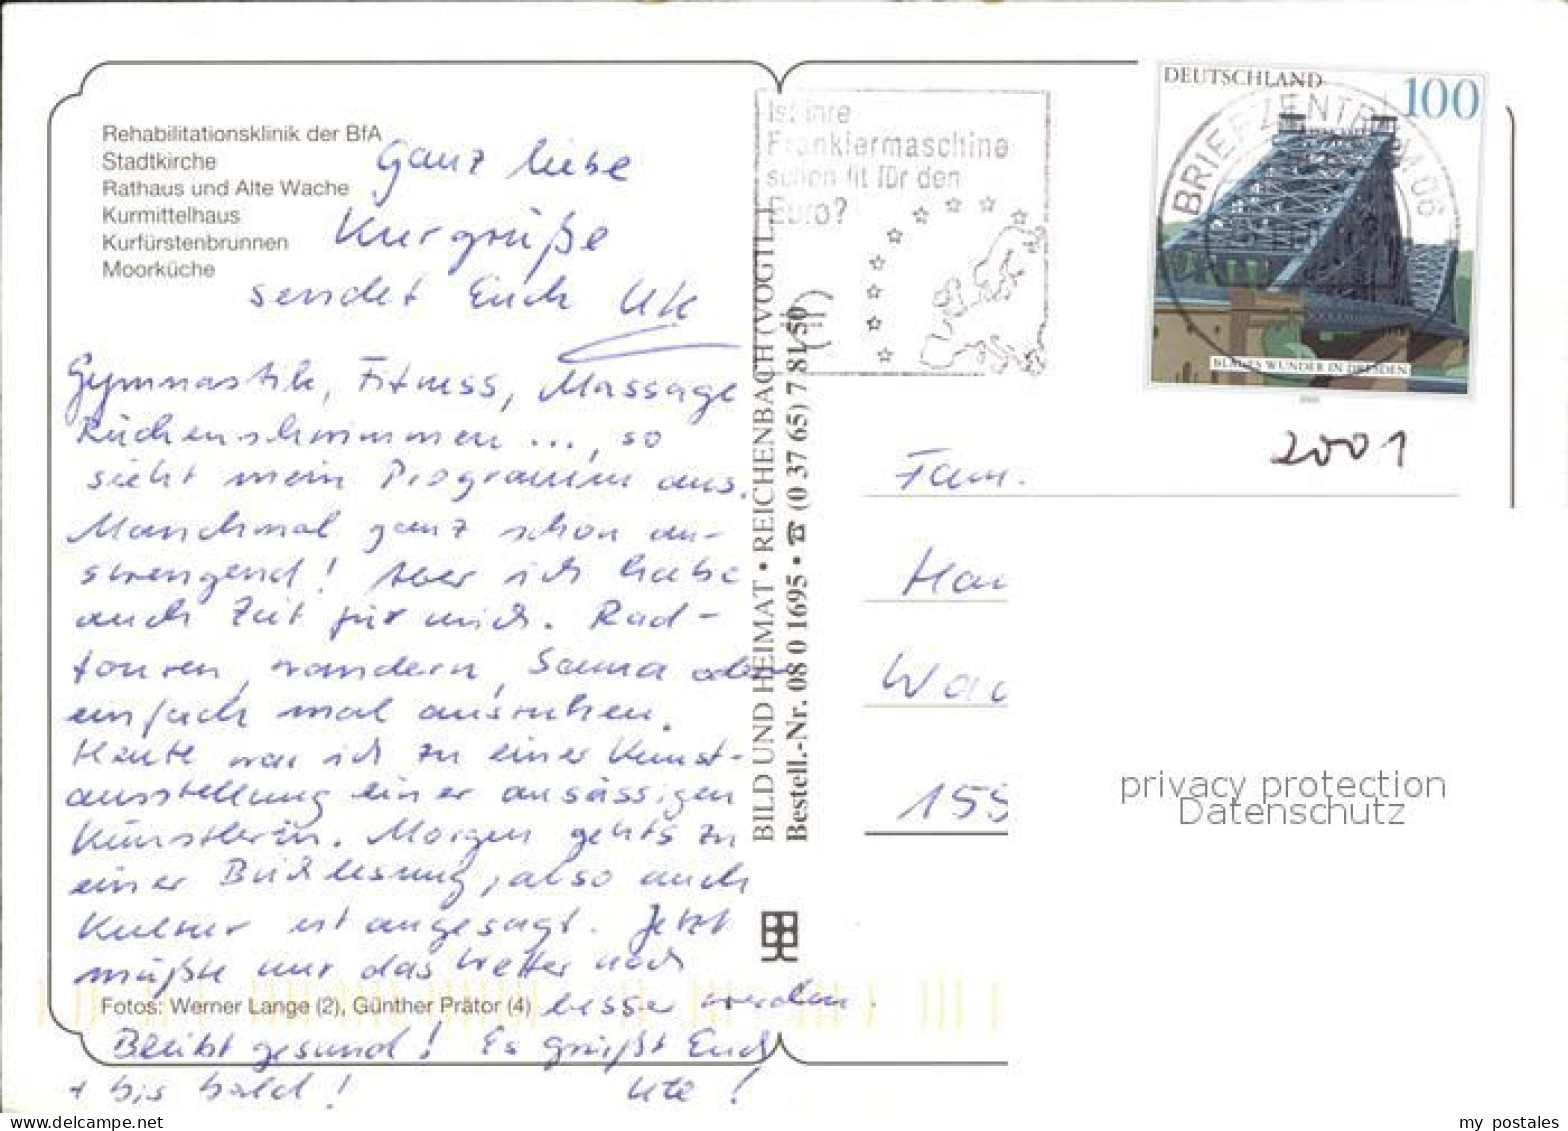 Rehabilitationsklinik der BfA
Stadtkirche
Rathaus und Alte Wache
Kurmittelhaus
Kurfürstenbrunnen
Moorküche
Ganz liebe
Kurgrüße
sendet Euch Ute
Gymnastik, Fitness, Massage
Rückenschwimmen ..., so
sieht mein Programm aus.
Manchmal ganz schön an-
strengend! Aber ich habe
auch Zeit für mich. Rad-
touren, wandern, Sauna oder
einfach mal ausruhen.
Heute war ich zu einer Kunst-
ausstellung einer ansässigen
Künstlerin. Morgen gehts zu
einer Buchlesung, also auch
Kultur ist angesagt. Jetzt
müßte nur das Wetter noch
Fotos: Werner Lange (2), Günther Prätor (4)
besser werden.
Bleibt gesund! Es grüßt Euch
+ bis bald! Ute!
BILD UND HEIMAT • REICHENBACH (VOGTL.)
Bestell.-Nr. 08 0 1695 • ☎ (0 37 65) 7 81 50
Ist ihre
Frankiermaschine
schon fit für den
Euro?
BRIEFZENTRUM 06
DEUTSCHLAND
100
BLAUES WUNDER IN DRESDEN
2000
2001
Fam.
Han
Wac
155
privacy protection
Datenschutz
my postales